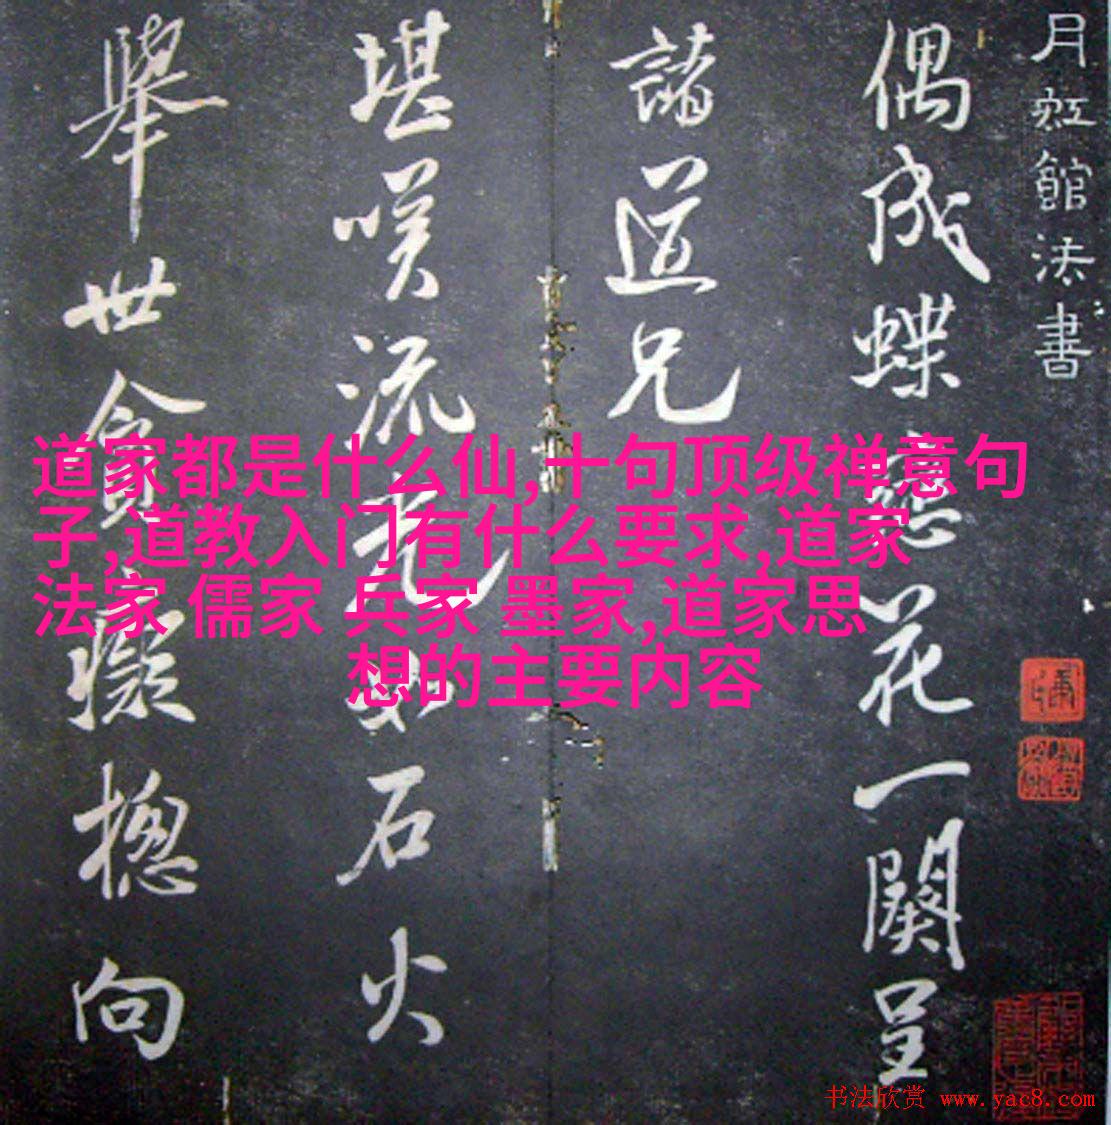 月虹館法書
偶成蝶戀花一闋呈
諸道兄
堪咲流光如石火
舉世貪癡揔向
道家都是什么仙,十句顶级禅意句
子,道教入门有什么要求,道家
法家 儒家 兵家 墨家,道家思
想的主要内容
书法欣赏 www.yac8.com